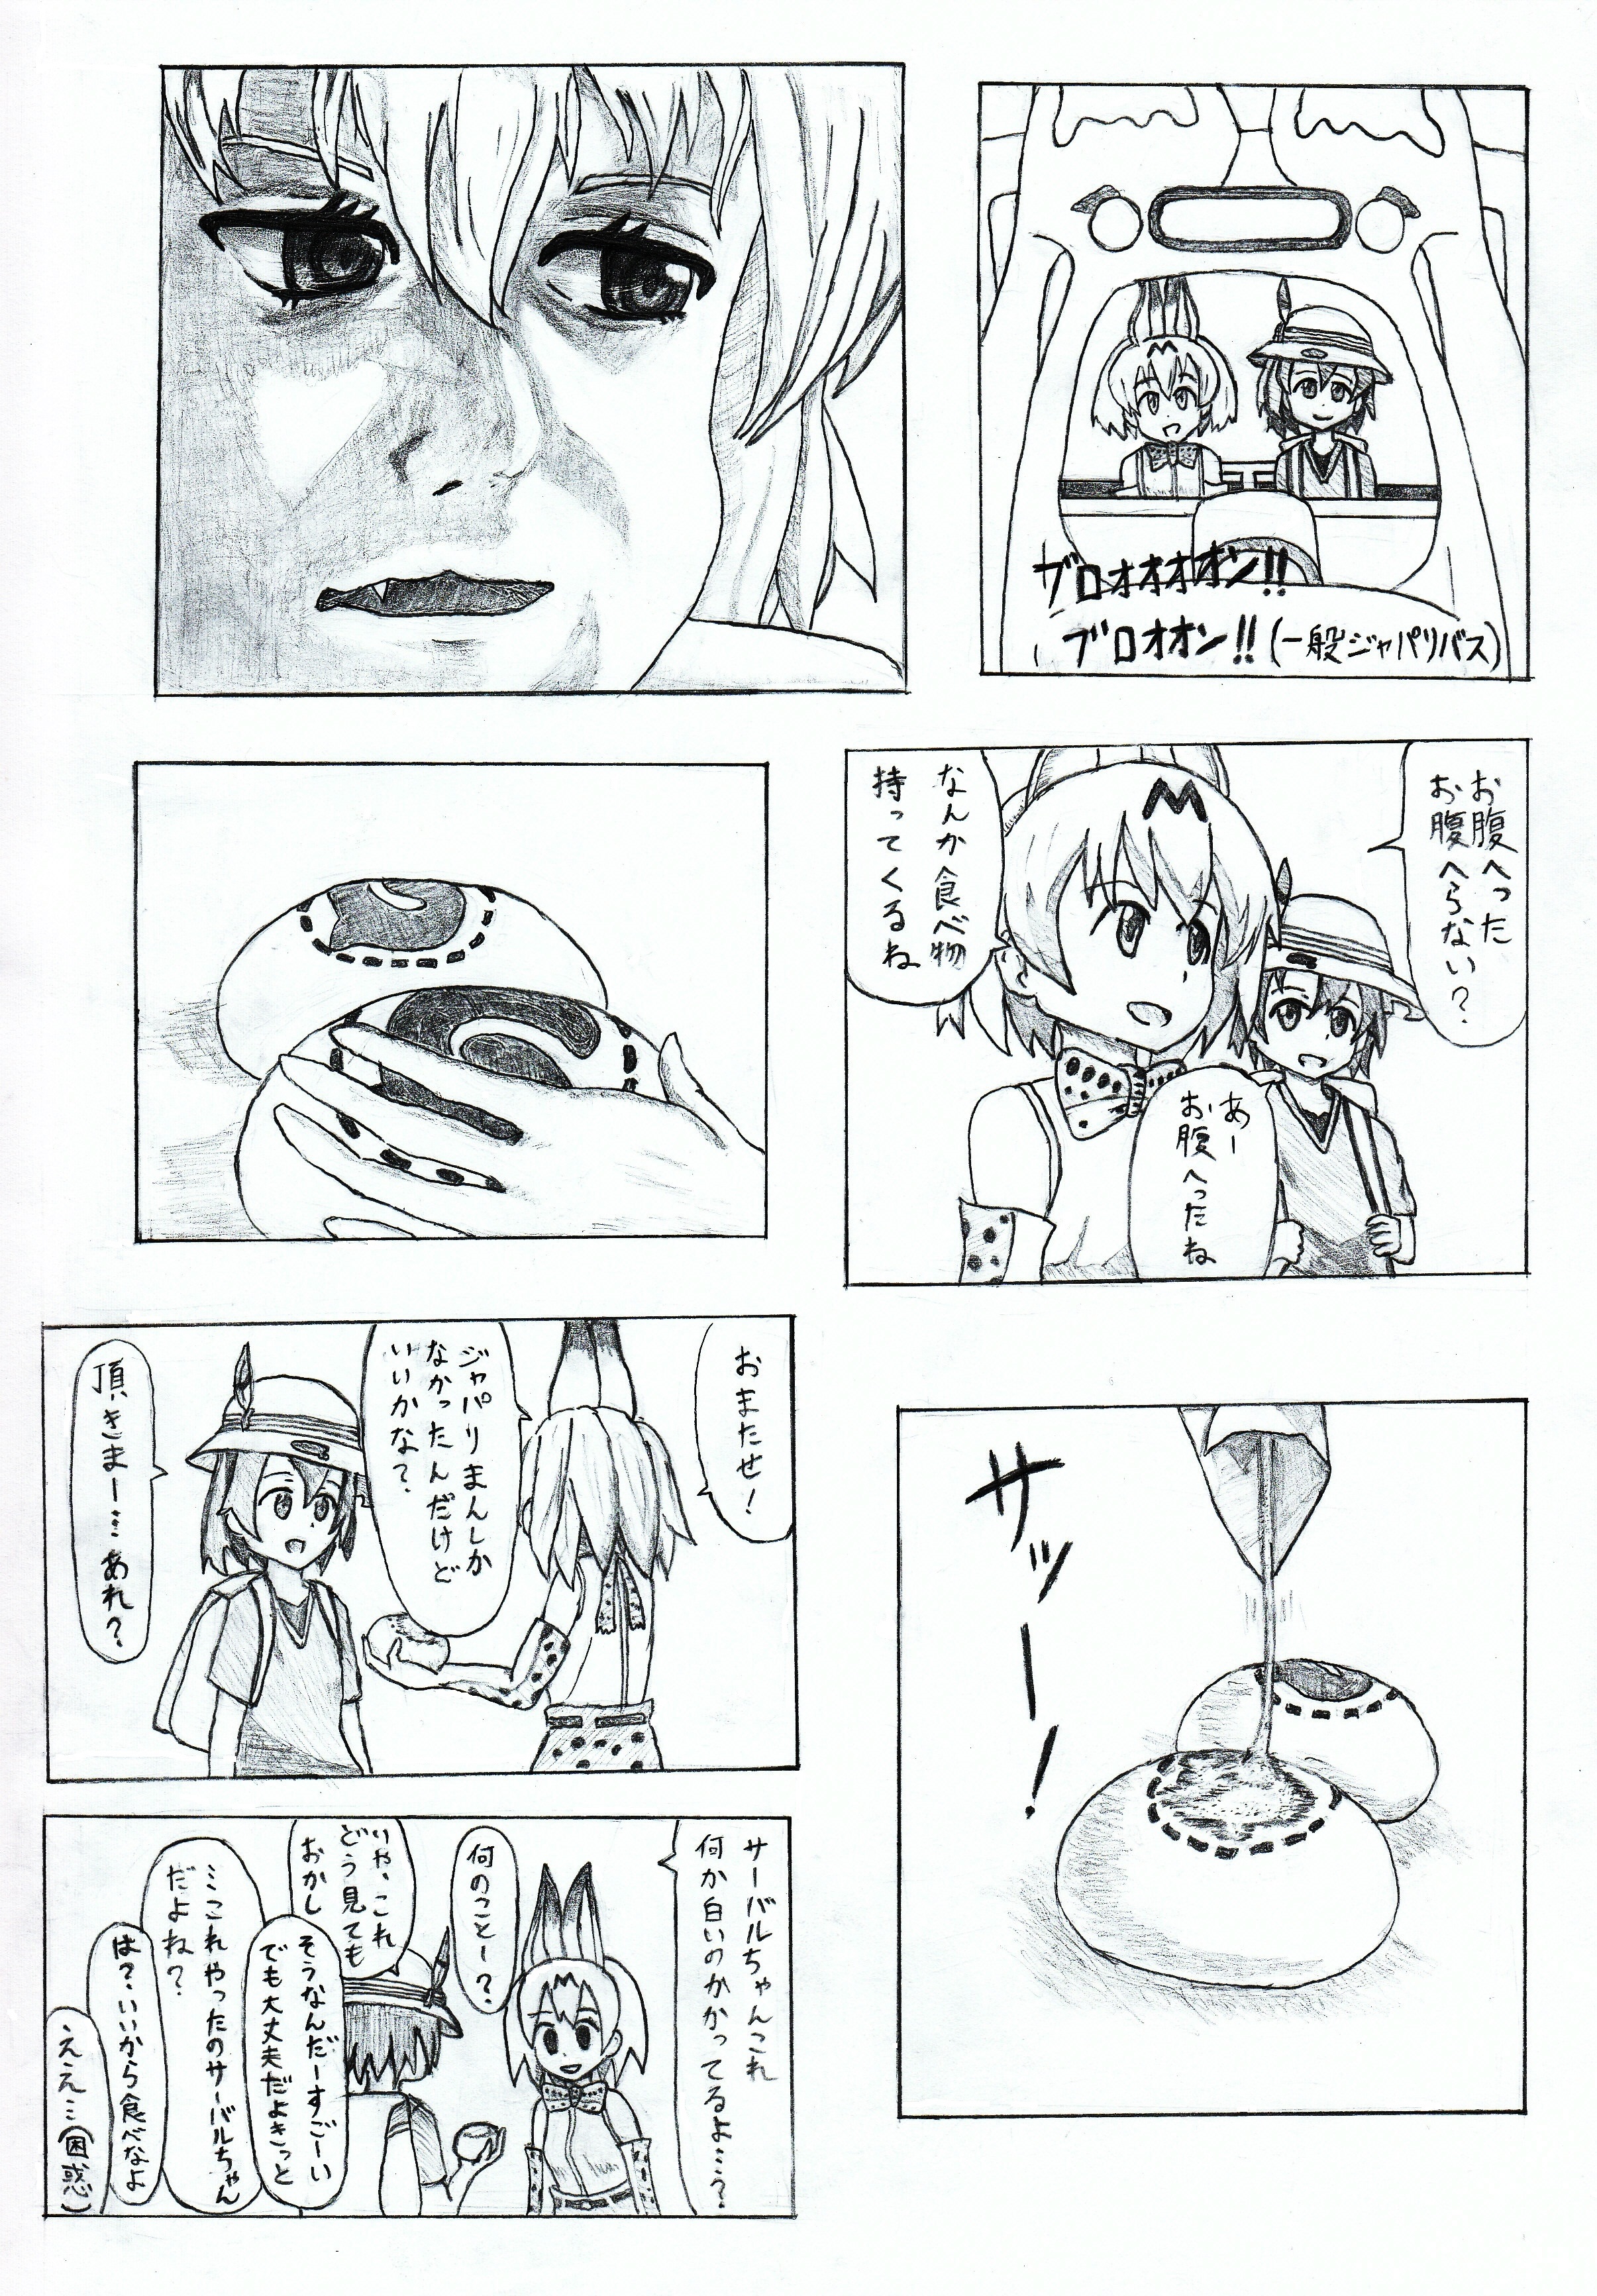 ブロオオオオン!!
ブロオオン!!(一般ジャパリバス)
お腹へった
お腹へらない?
あー
お腹へったね
なんか食べ物
持ってくるね
サッー!
おまたせ!
ジャパリまんしか
なかったんだけど
いいかな?
頂きまー…あれ?
サーバルちゃんこれ
何か白いのかかってるよ…?
何のことー?
いや、これ
どう見ても
おかし
そうなんだーすごーい
でも大丈夫だよきっと
…これやったのサーバルちゃん
だよね?
は?いいから食べなよ
ええ…(困惑)